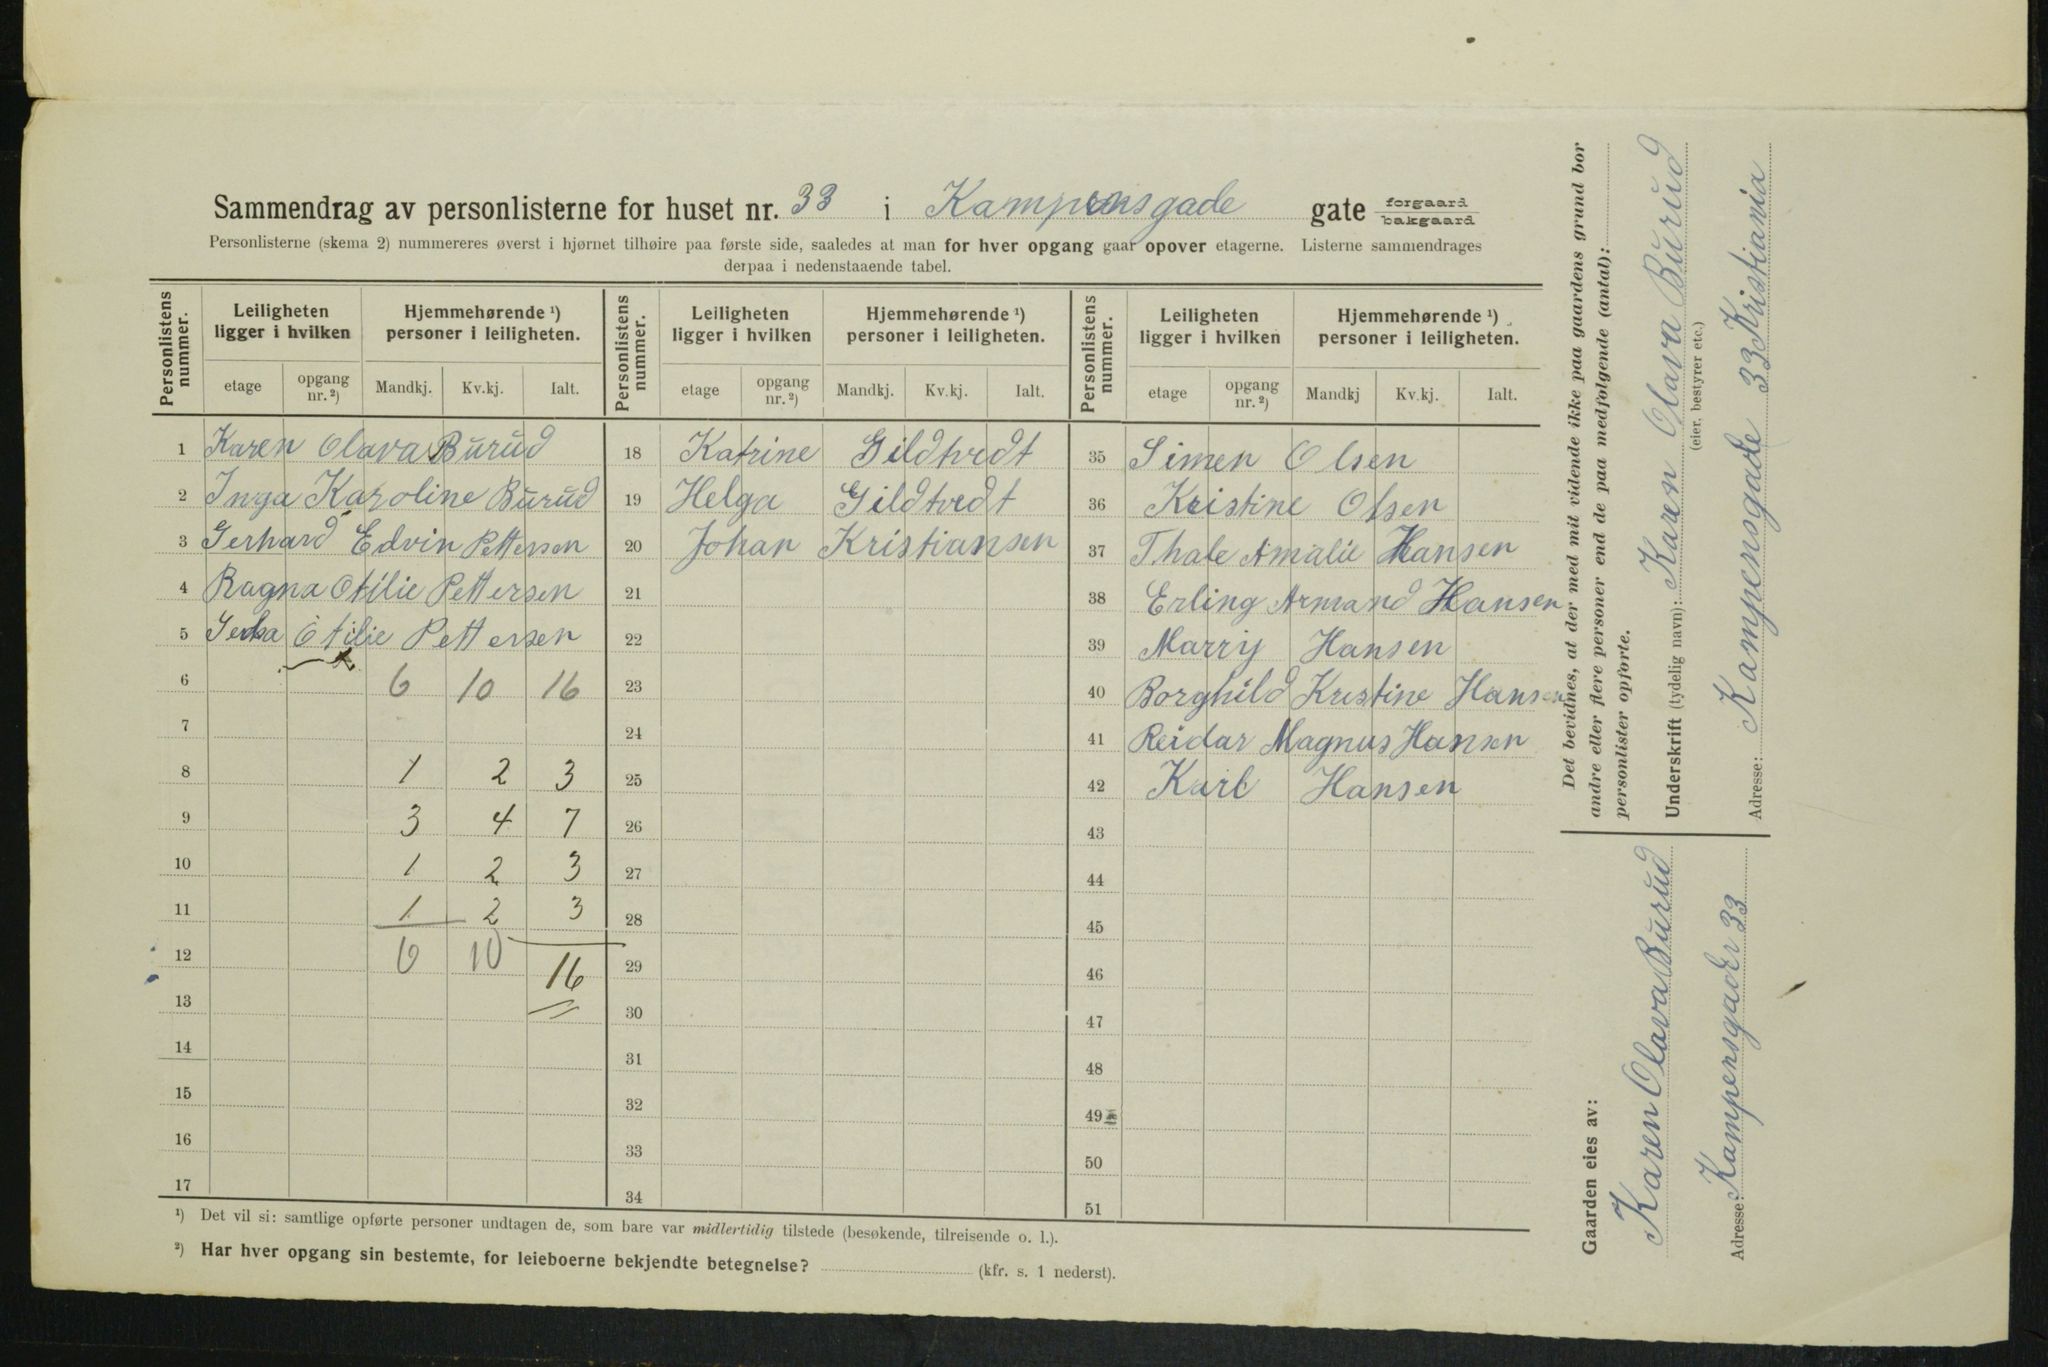 Sammendrag av personlisterne for huset nr. 33 i Kampensgade gate forgaard bakgaard
Personlisterne (skema 2) nummereres øverst i hjørnet tilhøire paa første side, saaledes at man for hver opgang gaar opover etagerne. Listerne sammendrages
derpaa i nedenstaaende tabel.
Personlistens nummer. Leiligheten ligger i hvilken Hjemmehørende ¹) personer i leiligheten. Personlistens nummer. Leiligheten ligger i hvilken Hjemmehørende ¹) personer i leiligheten. Personlistens nummer. Leiligheten ligger i hvilken Hjemmehørende ¹) personer i leiligheten.
etage opgang nr. ²) Mandkj. Kv.kj. Ialt. etage opgang nr. ²) Mandkj. Kv.kj. Ialt. etage opgang nr. ²) Mandkj Kv.kj. Ialt.
1 Karen Olava Burud 18 Katrine Gildtvedt 35 Simen Olsen
2 Inga Karoline Burud 19 Helga Gildtvedt 36 Kristine Olsen
3 Gerhard Edvin Pettersen 20 Johan Kristiansen 37 Thale Amalie Hansen
4 Ragna Otilie Pettersen 21 38 Erling Armand Hansen
5 Otilie Pettersen 22 39 Marriy Hansen
6 6 10 16 23 40 Borghild Kristine Hansen
7 24 41 Reidar Magnus Hansen
8 1 2 3 25 42 Karl Hansen
9 3 4 7 26 43
10 1 2 3 27 44
11 1 2 3 28 45
12 6 10 16 29 46
13 30 47
14 31 48
15 32 49
16 33 50
17 34 51
¹) Det vil si: samtlige opførte personer undtagen de, som bare var midlertidig tilstede (besøkende, tilreisende o. l.).
²) Har hver opgang sin bestemte, for leieboerne bekjendte betegnelse? (kfr. s. 1 nederst).
Det bevidnes, at der med mit vidende ikke paa gaardens grund bor
andre eller flere personer end de paa medfølgende (antal):
personlister opførte.
Underskrift (tydelig navn): Karen Olava Burud
(eier, bestyrer etc.)
Adresse: Kampensgade 33 Kristiania
Gaarden eies av:
Karen Olava Burud
Adresse: Kampensgaden 33